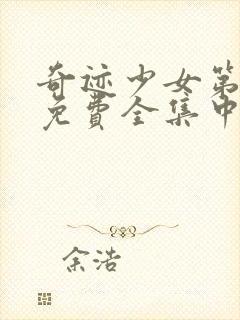 奇迹少女第
免费全集中
余浩